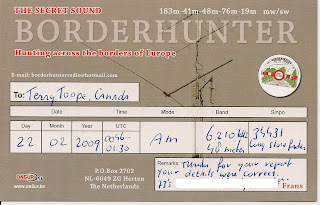 THE SECRET SOUND 183m-41m-48m-76m-19m mw/sw
BORDERHUNTER
Hunting across the borders of Europe
E-mail; borderhunterradio@hotmail.com
To: Terry Toope, Canada
Date UTC Mode Band Sinpo
Day Month Year
22 02 2009 0046- 0130 Am 6.210 kHz 48 meter 34431
P.O.Box 2702
NL-6049 ZG Herten
The Netherlands
Remarks: Thanks for your report
your details were correct.
73's Frans
www.onair.be